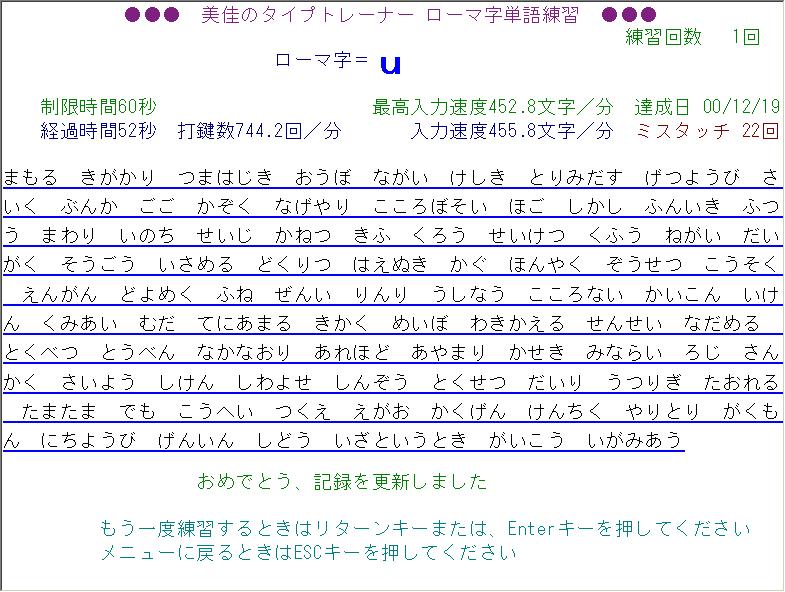 ●●● 美佳のタイプトレーナー ローマ字単語練習 ●●●
練習回数 1回
ローマ字= u
制限時間60秒 最高入力速度452.8文字/分 達成日 00/12/19
経過時間52秒 打鍵数744.2回/分 入力速度455.8文字/分 ミスタッチ 22回
まもる きがかり つまはじき おうぼ ながい けしき とりみだす げつようび さ
いく ぶんか ごご かぞく なげやり こころぼそい ほご しかし ふんいき ふつ
う まわり いのち せいじ かねつ きふ くろう せいけつ くふう ねがい だい
がく そうごう いさめる どくりつ はえぬき かぐ ほんやく ぞうせつ こうそく
えんがん どよめく ふね ぜんい りんり うしなう こころない かいこん いけ
ん くみあい むだ てにあまる きかく めいぼ わきかえる せんせい なだめる
とくべつ とうべん なかなおり あれほど あやまり かせき みならい ろじ さん
かく さいよう しけん しわよせ しんぞう とくせつ だいり うつりぎ たおれる
たまたま でも こうへい つくえ えがお かくげん けんちく やりとり がくも
ん にちようび げんいん しどう いざというとき がいこう いがみあう
おめでとう、記録を更新しました
もう一度練習するときはリターンキーまたは、Enterキーを押してください
メニューに戻るときはESCキーを押してください